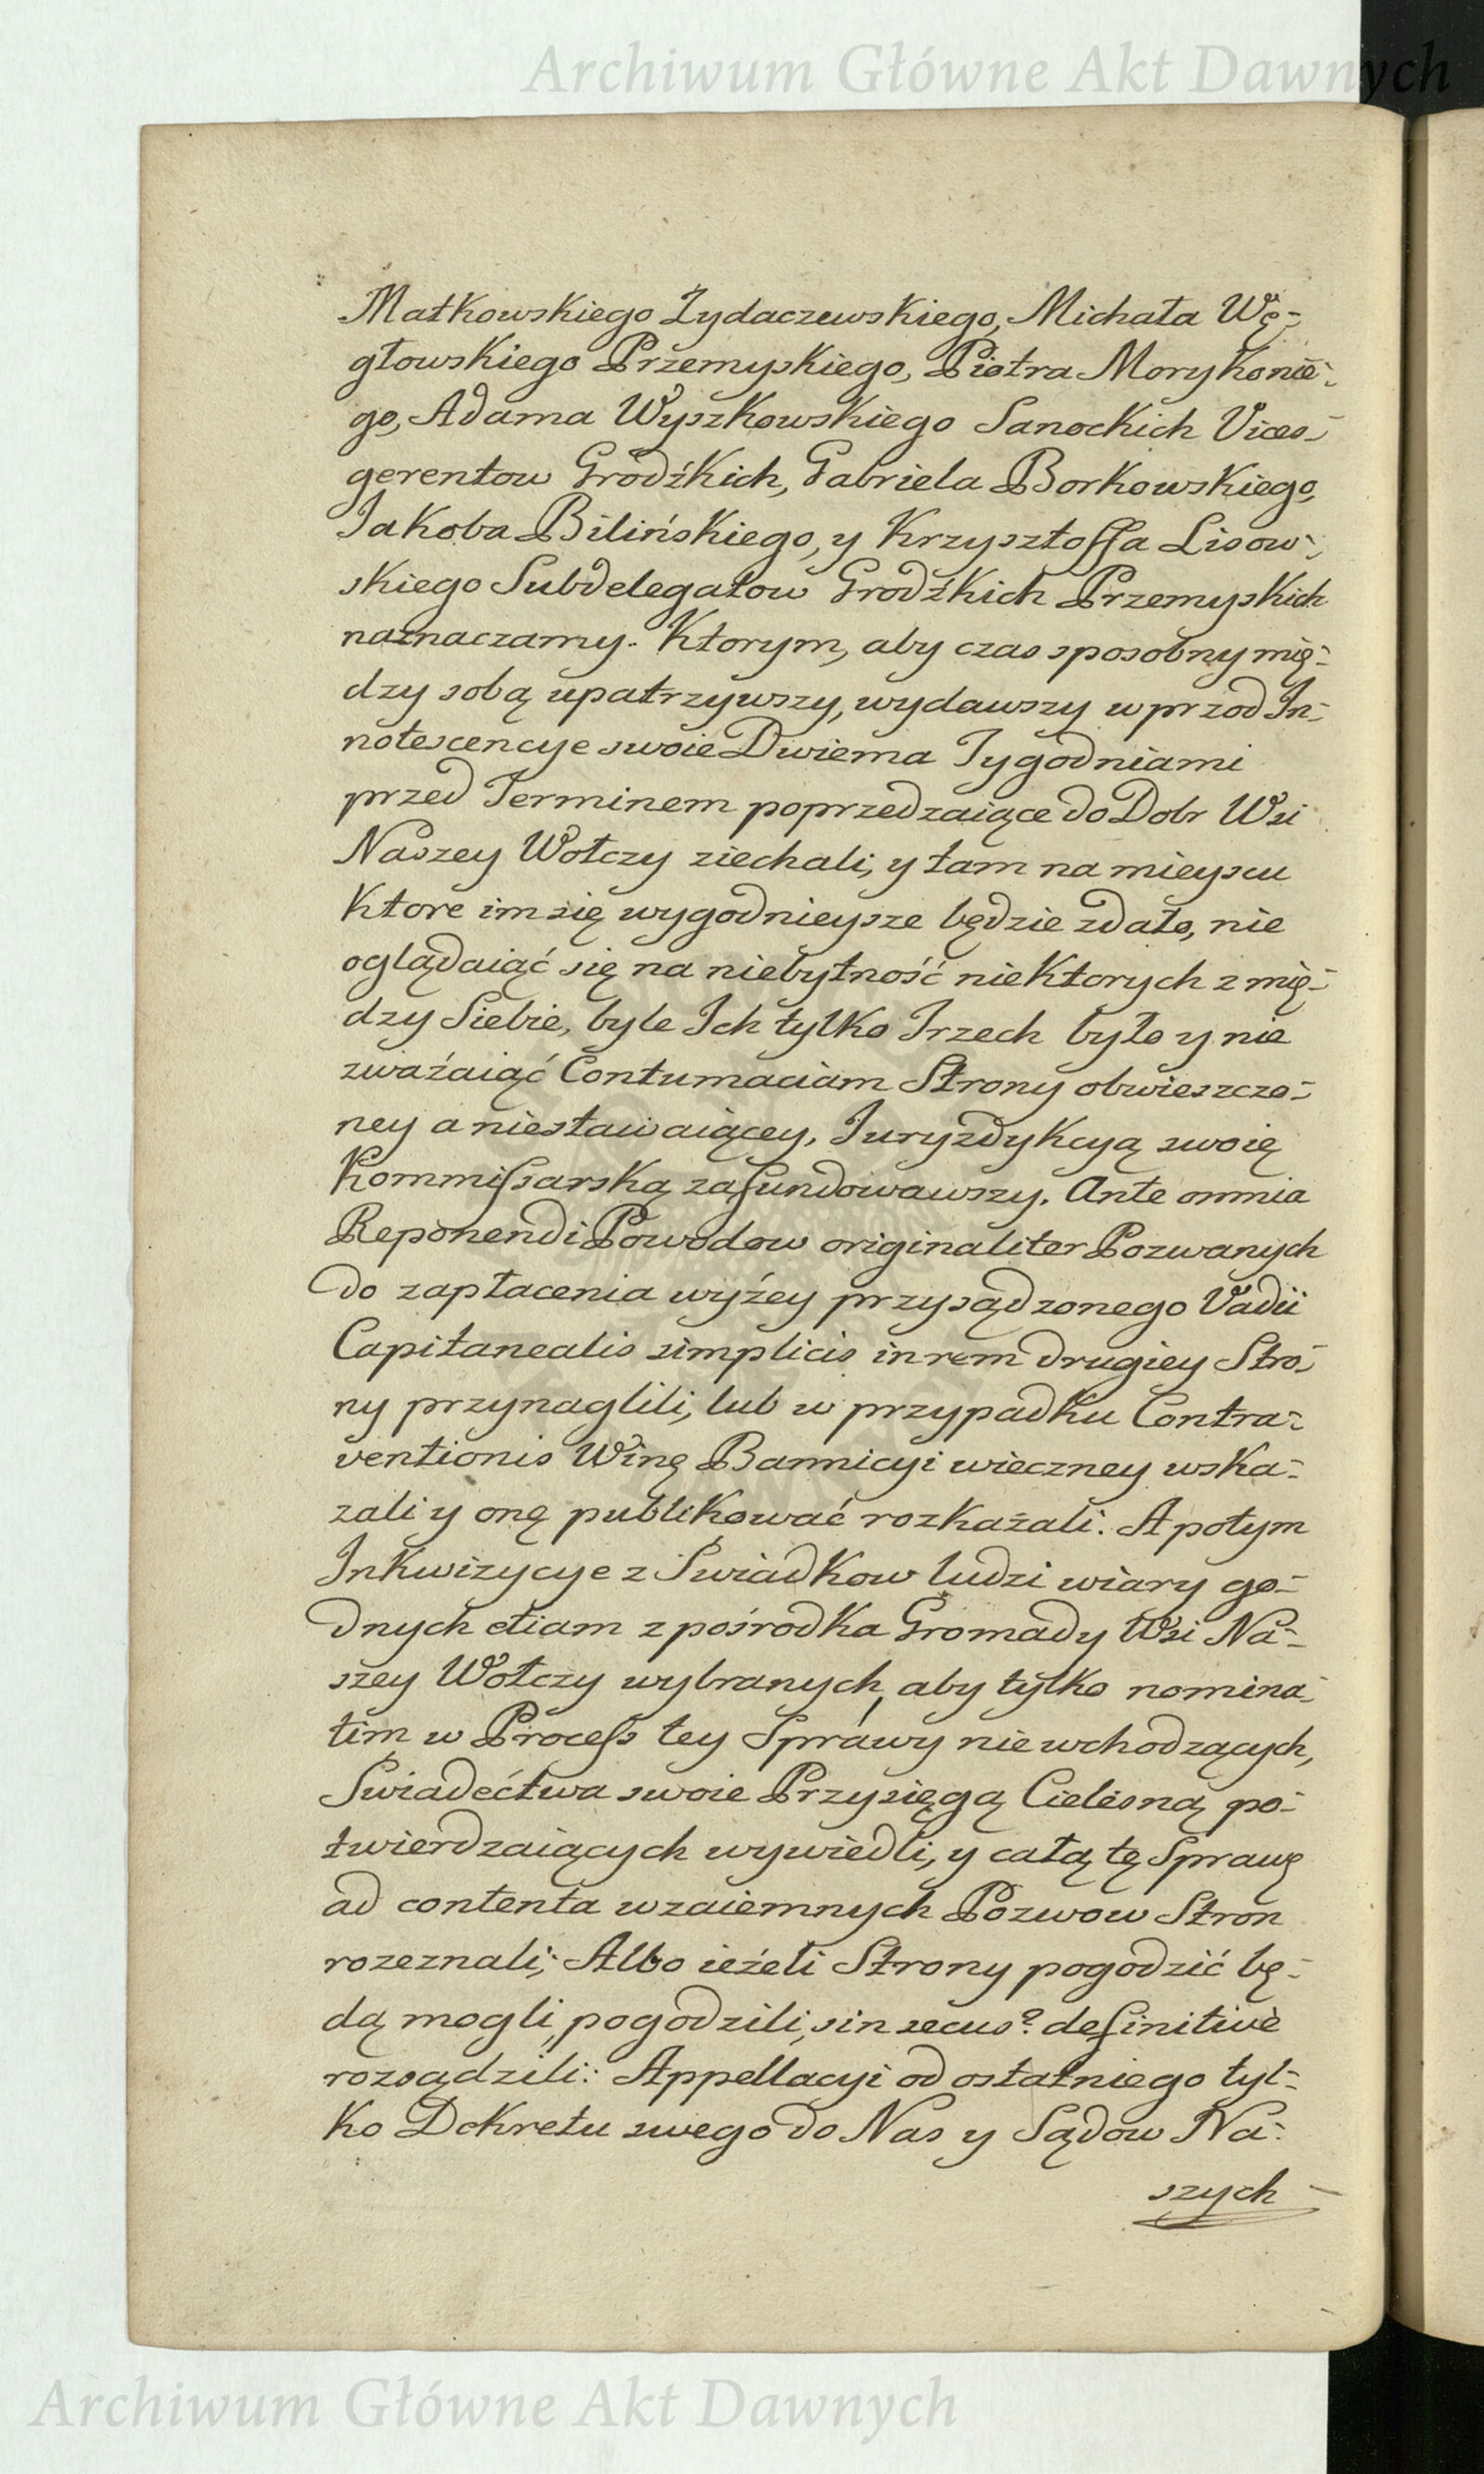 Archiwum Główne Akt Dawnych
Matkowskiego Żydaczewskiego, Michała Wę-
głowskiego Przemyskiego, Piotra Morykonie-
go, Adama Wyszkowskiego Sanockich Vices-
gerentow Grodźkich, Gabriela Borkowskiego,
Jakoba Bilińskiego, y Krzysztoffa Lisow-
skiego Subdelegatow Grodźkich Przemyskich
naznaczamy. Ktorym, aby czas sposobny mię-
dzy sobą upatrzywszy, wydawszy wprzod In-
notescencye swoie Dwiema Tygodniami
przed Terminem poprzedzaiące do Dobr Wsi
Naszey Wołczy ziechali, y tam na mieyscu
Ktore im się wygodnieysze będzie zdało, nie
oglądaiąć się na niebytność niektorych z mię-
dzy Siebie, byle Ich tylko Trzech było y nie
zważaiąć Contumaciam Strony obwieszczo-
ney a niestawaiącey, Juryzdykcyą swoię
Kommissarską zafundowawszy. Ante omnia
Reponendi Powodow originaliter Pozwanych
do zapłacenia wyżey przysądzonego Vadii
Capitanealis simplicis in rem drugiey Stro-
ny przynaglili, lub w przypadku Contra-
ventionis Winę Bannicyi wieczney wska-
zali y onę publikować rozkazali. A potym
Inkwizycye z Swiadkow ludzi wiary go-
dnych etiam z pośrodka Gromady Wsi Na-
szey Wołczy wybranych, aby tylko nomina-
tim w Process tey Sprawy nie wchodzących,
Swiadectwa swoie Przysięgą Cielesną po-
twierdzaiących wywiedli, y całą tę Sprawę
ad contenta wzaiemnych Pozwow Stron
rozeznali; Albo ieżeli Strony pogodzić bę-
dą mogli, pogodzili, sin secus? definitivè
rozsądzili: Appellacyi od ostatniego tyl-
ko Dekretu swego do Nas y Sądow Na-
szych
Archiwum Główne Akt Dawnych